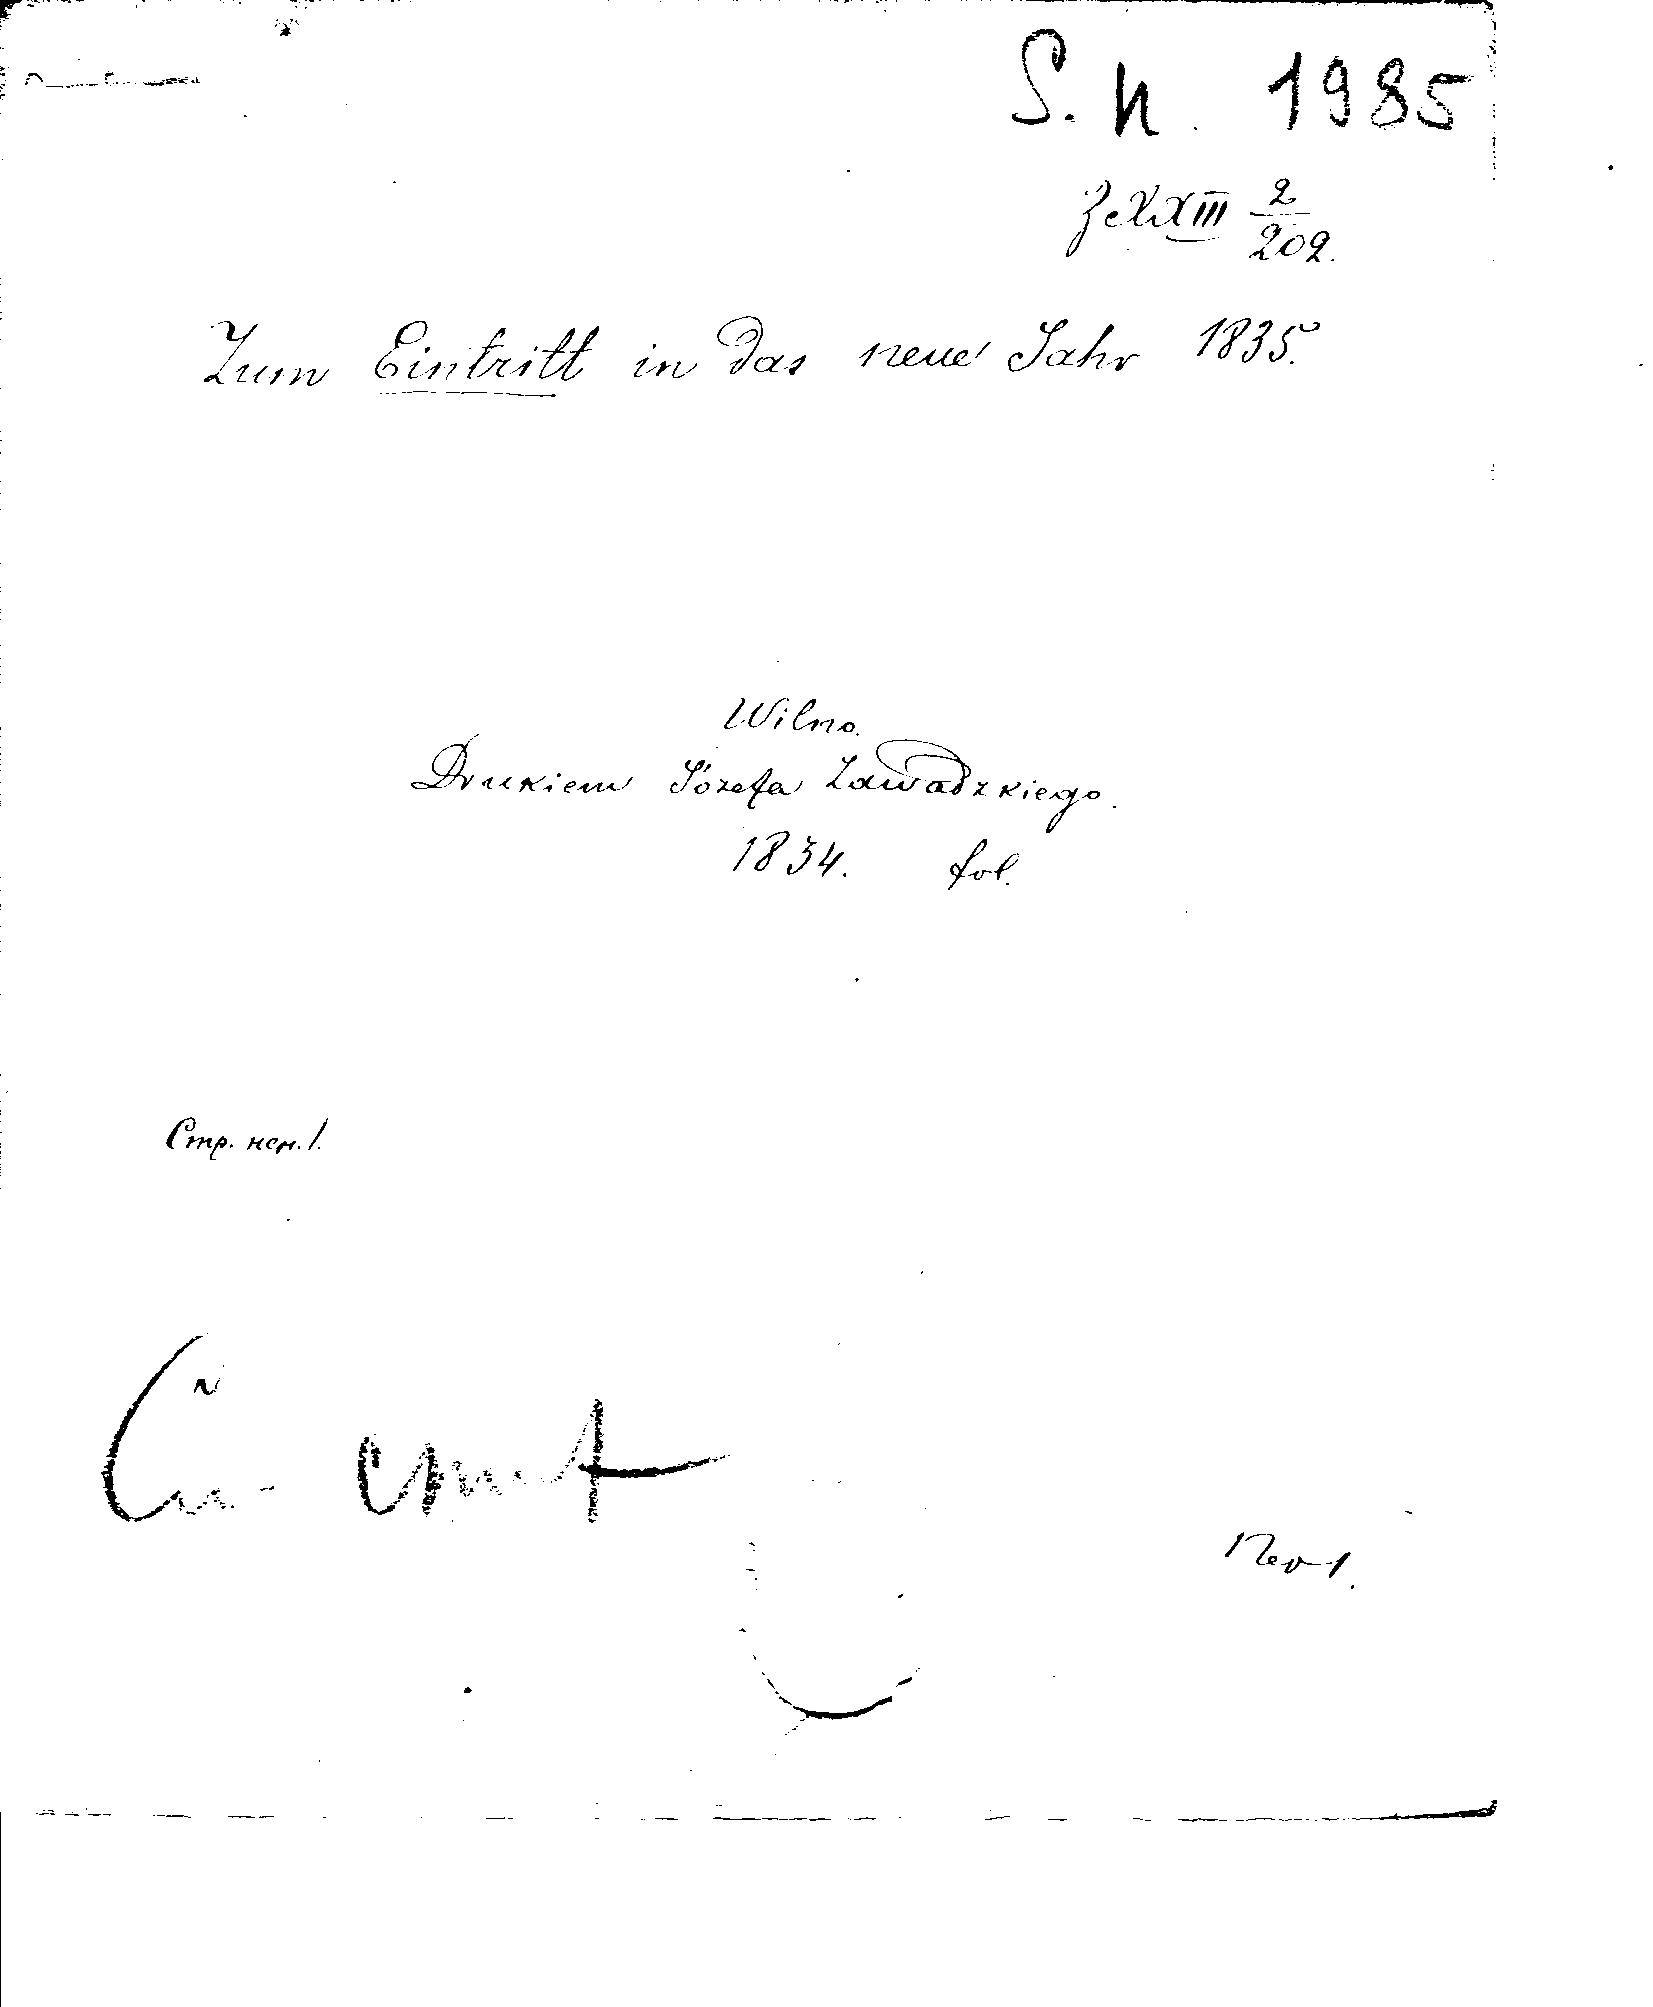 S. n. 1985
XXIII 2/202.
Zum Eintritt in das neue Jahr 1835.
Wilno.
Drukiem Józefa Zawadzkiego.
1834. fol.
Стр. нен. 1.